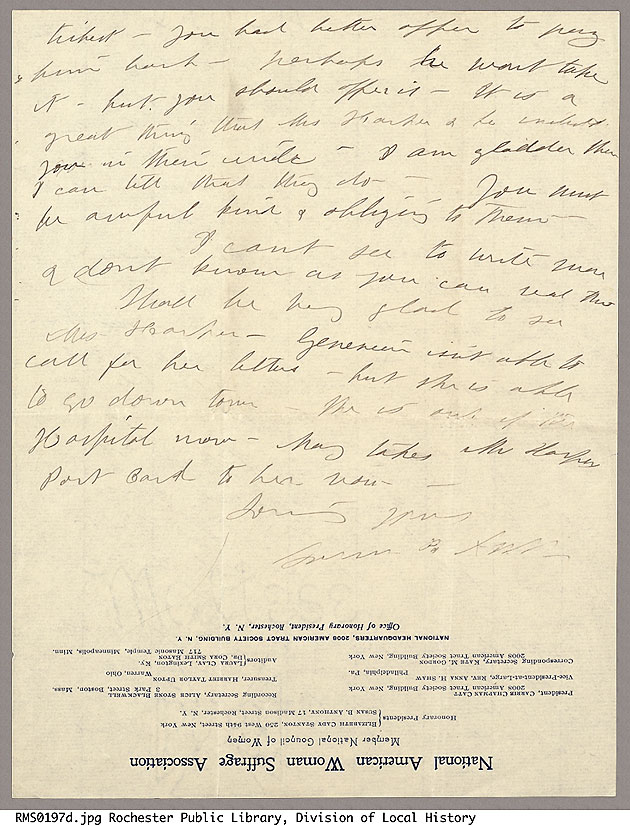 ticket – you had better offer to pay
him back – perhaps he wont take
it – but you should offer it – It is a
great thing that Mrs Harper & he
you in their – I am gladder than
I can tell that they do – – You must
be awful kind & obliging to them –
I cant see to write more
& dont know as you can read this
Shall be very glad to see
Mrs Harper – isn't able to
call for her letters – but she is able
to go down town – She is out of the
Hospital now – May takes Mrs Harper
Post Card to her now –
yours
Susan B
National American Woman Suffrage Association
Member National Council of Women
Honorary Presidents { ELIZABETH CADY STANTON, 250 West 94th Street, New York
SUSAN B. ANTHONY, 17 Madison Street, Rochester, N. Y.
President, CARRIE CHAPMAN CATT
2008 American Tract Society Building, New York
Vice-President-at-Large, REV. ANNA H. SHAW
Philadelphia, Pa.
Corresponding Secretary, KATE M. GORDON
2008 American Tract Society Building, New York
Recording Secretary, ALICE STONE BLACKWELL
3 Park Street, Boston, Mass.
Treasurer, HARRIET TAYLOR UPTON
Warren, Ohio
Auditors { LAURA CLAY, Lexington, Ky.
DR. CORA SMITH EATON
717 Masonic Temple, Minneapolis, Minn.
NATIONAL HEADQUARTERS, 2008 AMERICAN TRACT SOCIETY BUILDING, N. Y.
Office of Honorary President, Rochester, N. Y.
RMS0197d.jpg Rochester Public Library, Division of Local History